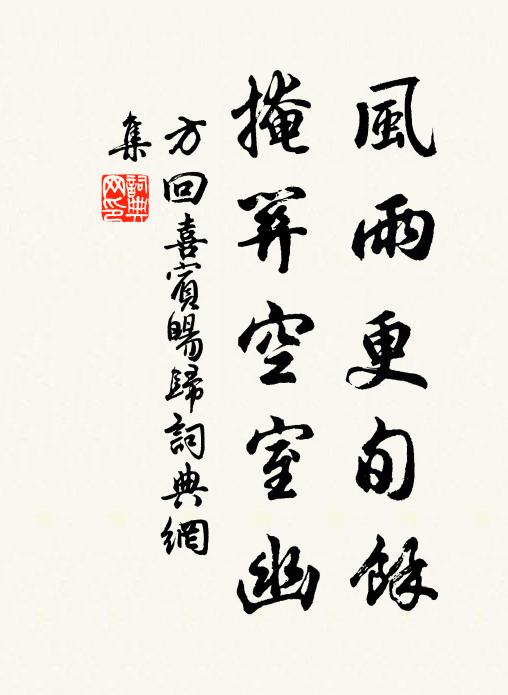 風雨更旬餘
掩笄空室幽
方回喜賓暘歸詞典網
集
詞典
网印